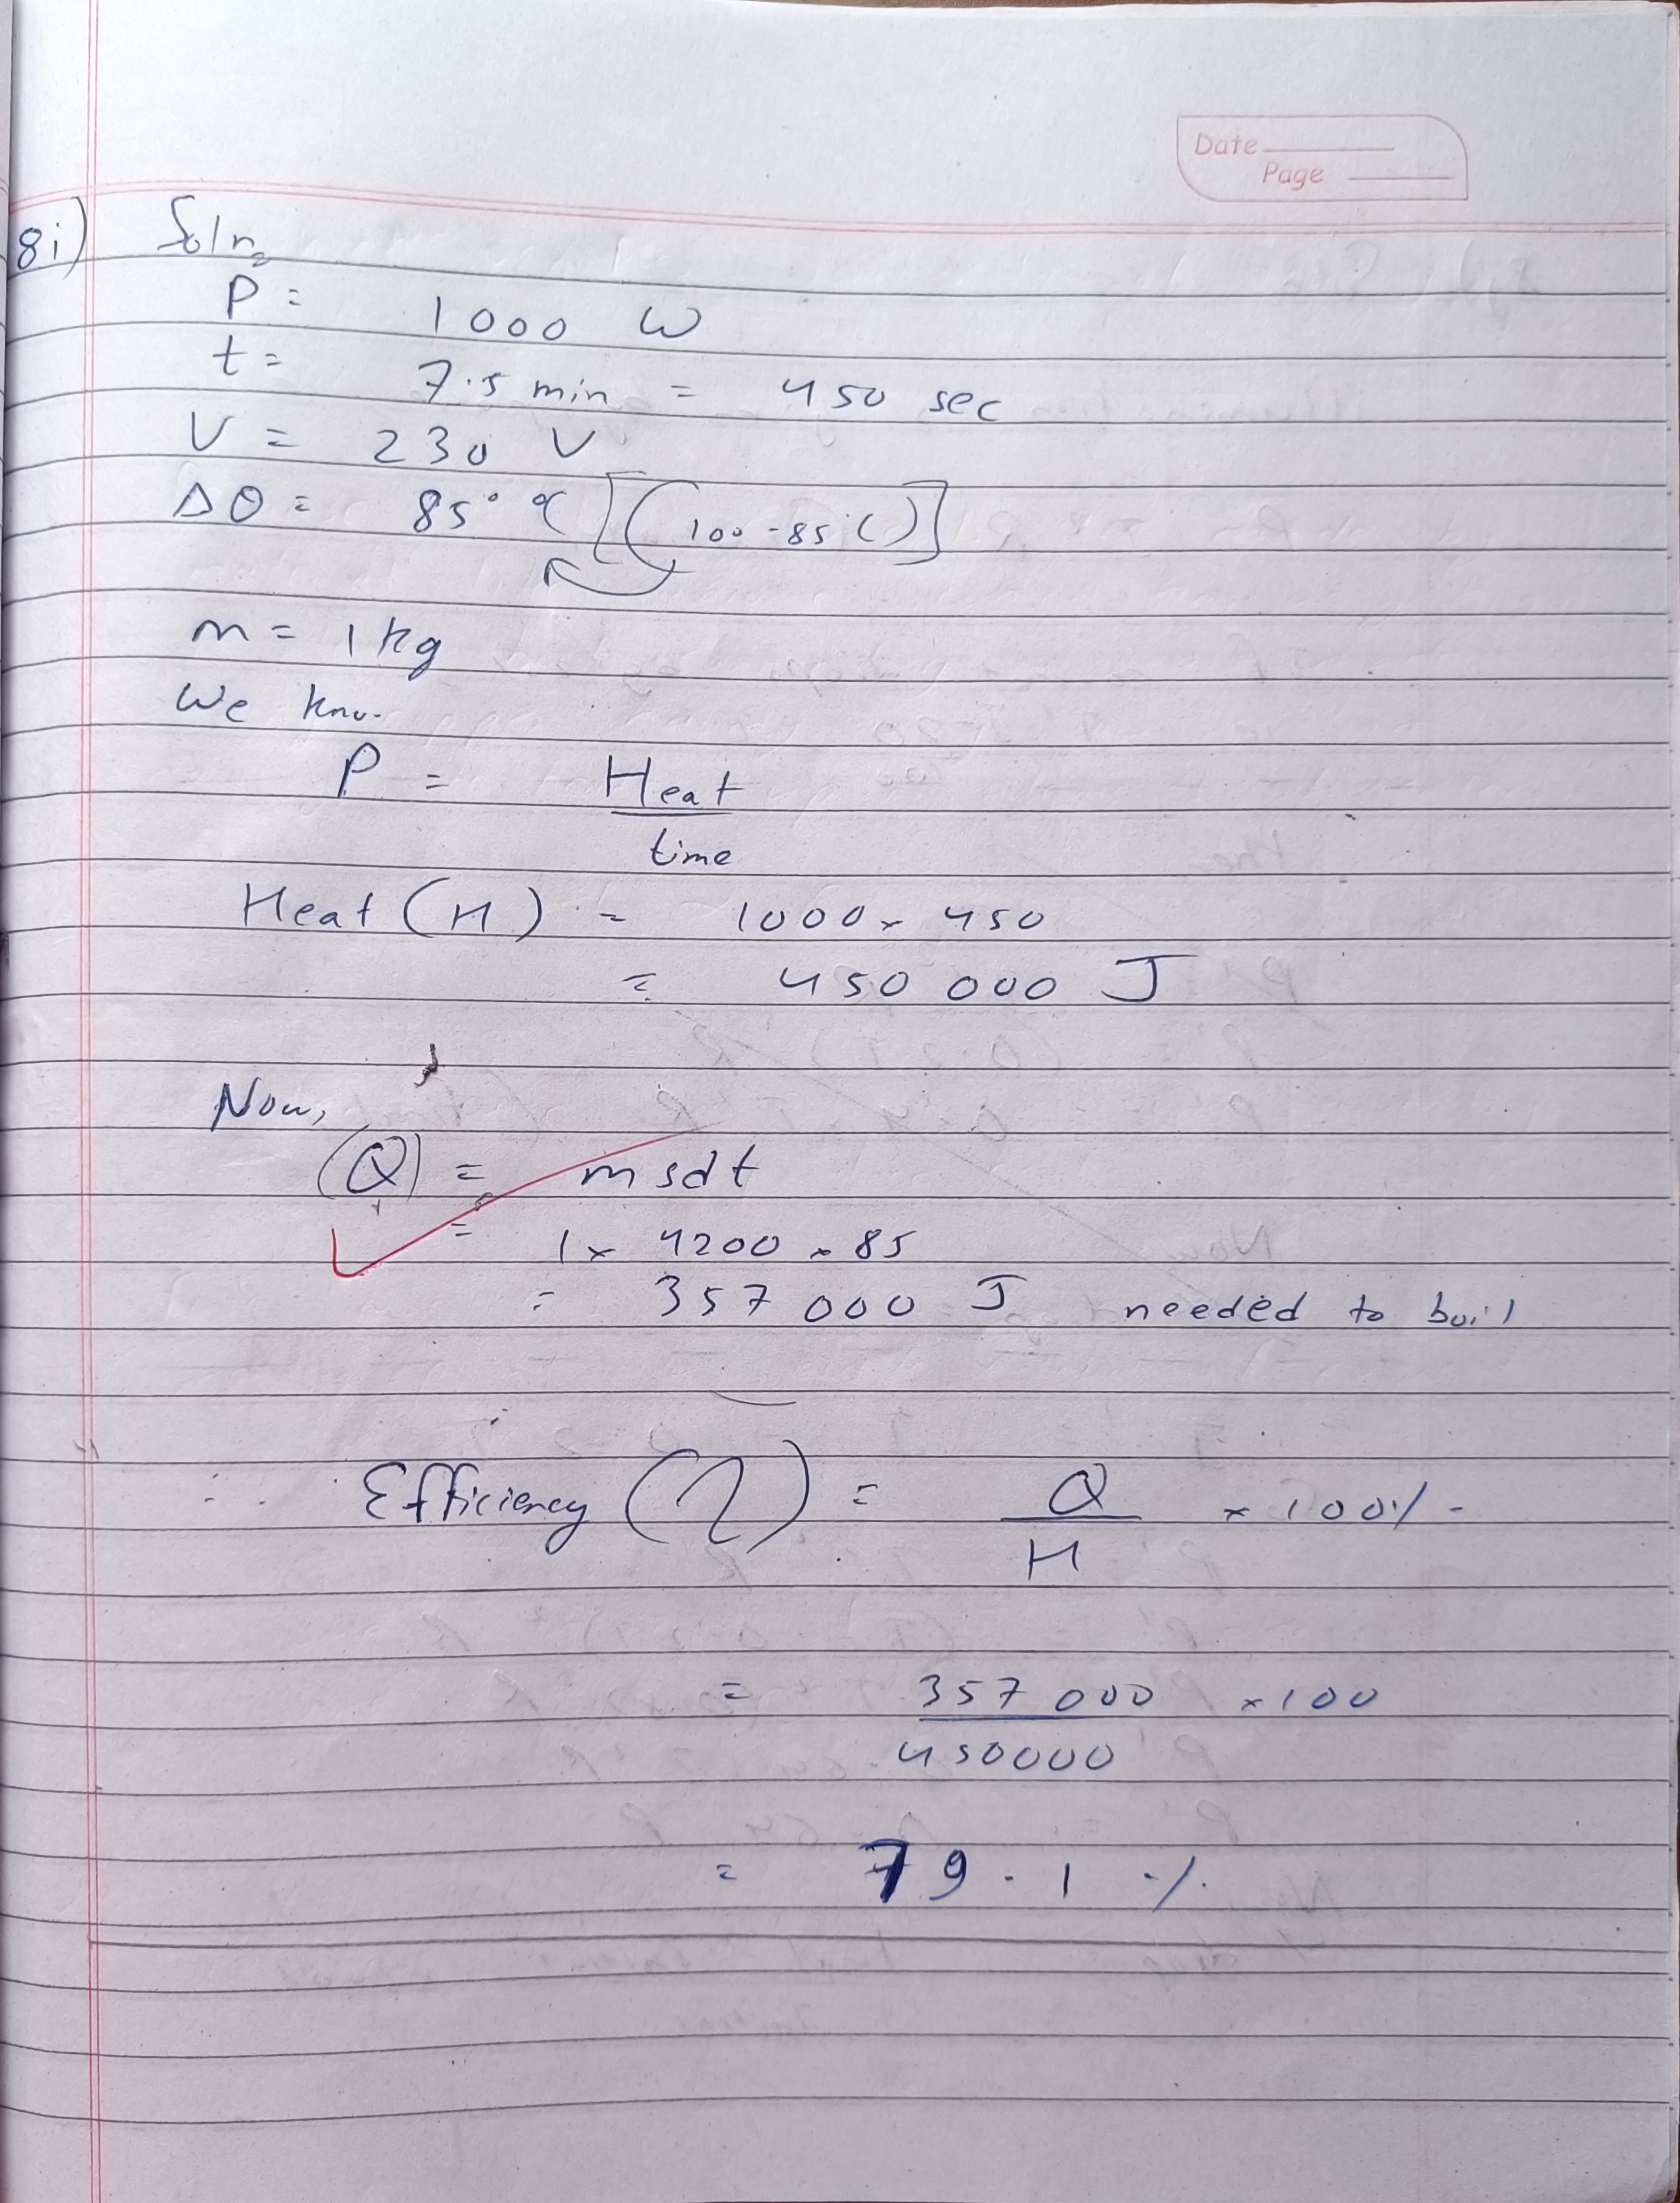 Date
Page
8i) Soln
P = 1000 W
t = 7.5 min = 450 sec
V = 230 V
Δθ = 85° °C [(100 - 85°C)]
m = 1 kg
We kno.
P = Heat
time
Heat (H) = 1000 × 450
= 450 000 J
Now,
(Q) = msdt
= 1 × 4200 × 85
= 357 000 J needed to boil
∴ Efficiency (η) = Q × 100%
H
= 357 000 × 100
450000
= 79.1 %